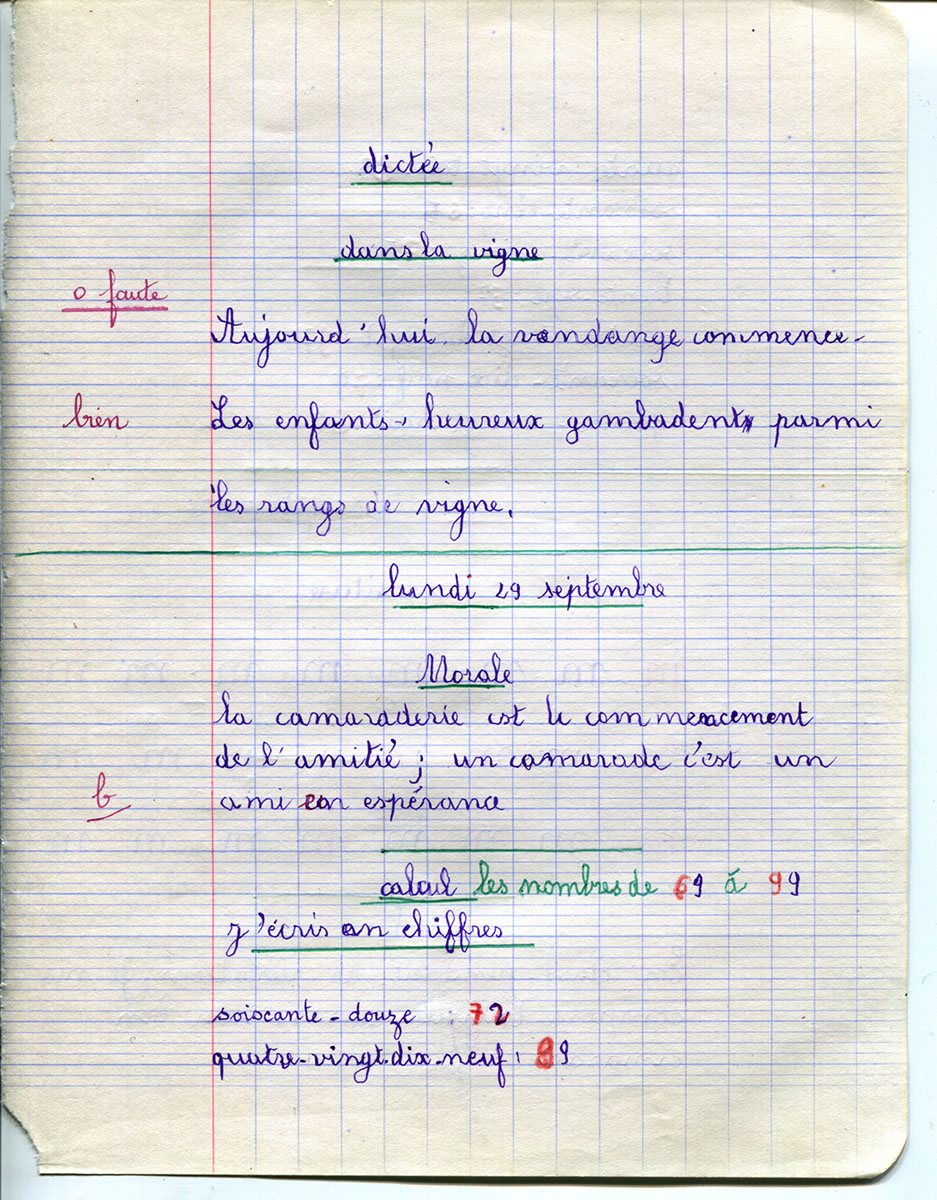 dictée
dans la vigne
0 faute
Aujourd'hui la vendange commence.
bien
Les enfants, heureux gambadent parmi
les rangs de vigne.
lundi 29 septembre
Morale
la camaraderie est le commencement
de l'amitié ; un camarade c'est un
b
ami en espérance
calcul les nombres de 69 à 99
j'écris en chiffres
soiscante-douze : 72
quatre-vingt-dix-neuf : 99